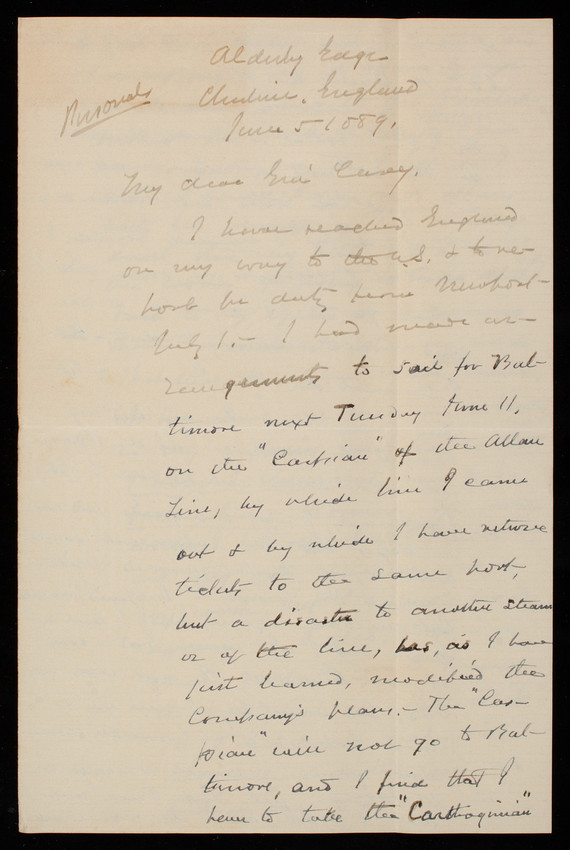 Alderly Edge
Cheshire, England
Personal
June 5 1889.
My dear Gen'l Casey,
I have reached England
on my way to the U.S. & to re-
port for duty from Newport
July 1.- I had made ar-
rangements to sail for Bal-
timore next Tuesday June 11,
on the "Caspian" of the Allan
Line, by which line I came
out & by which I have return
tickets to the same port,
but a disaster to another steam-
er of the line, has, as I have
just learned, modified the
Company's plans.- The "Cas-
pian" will not go to Bal-
timore, and I find that I
have to take the "Carthaginian"